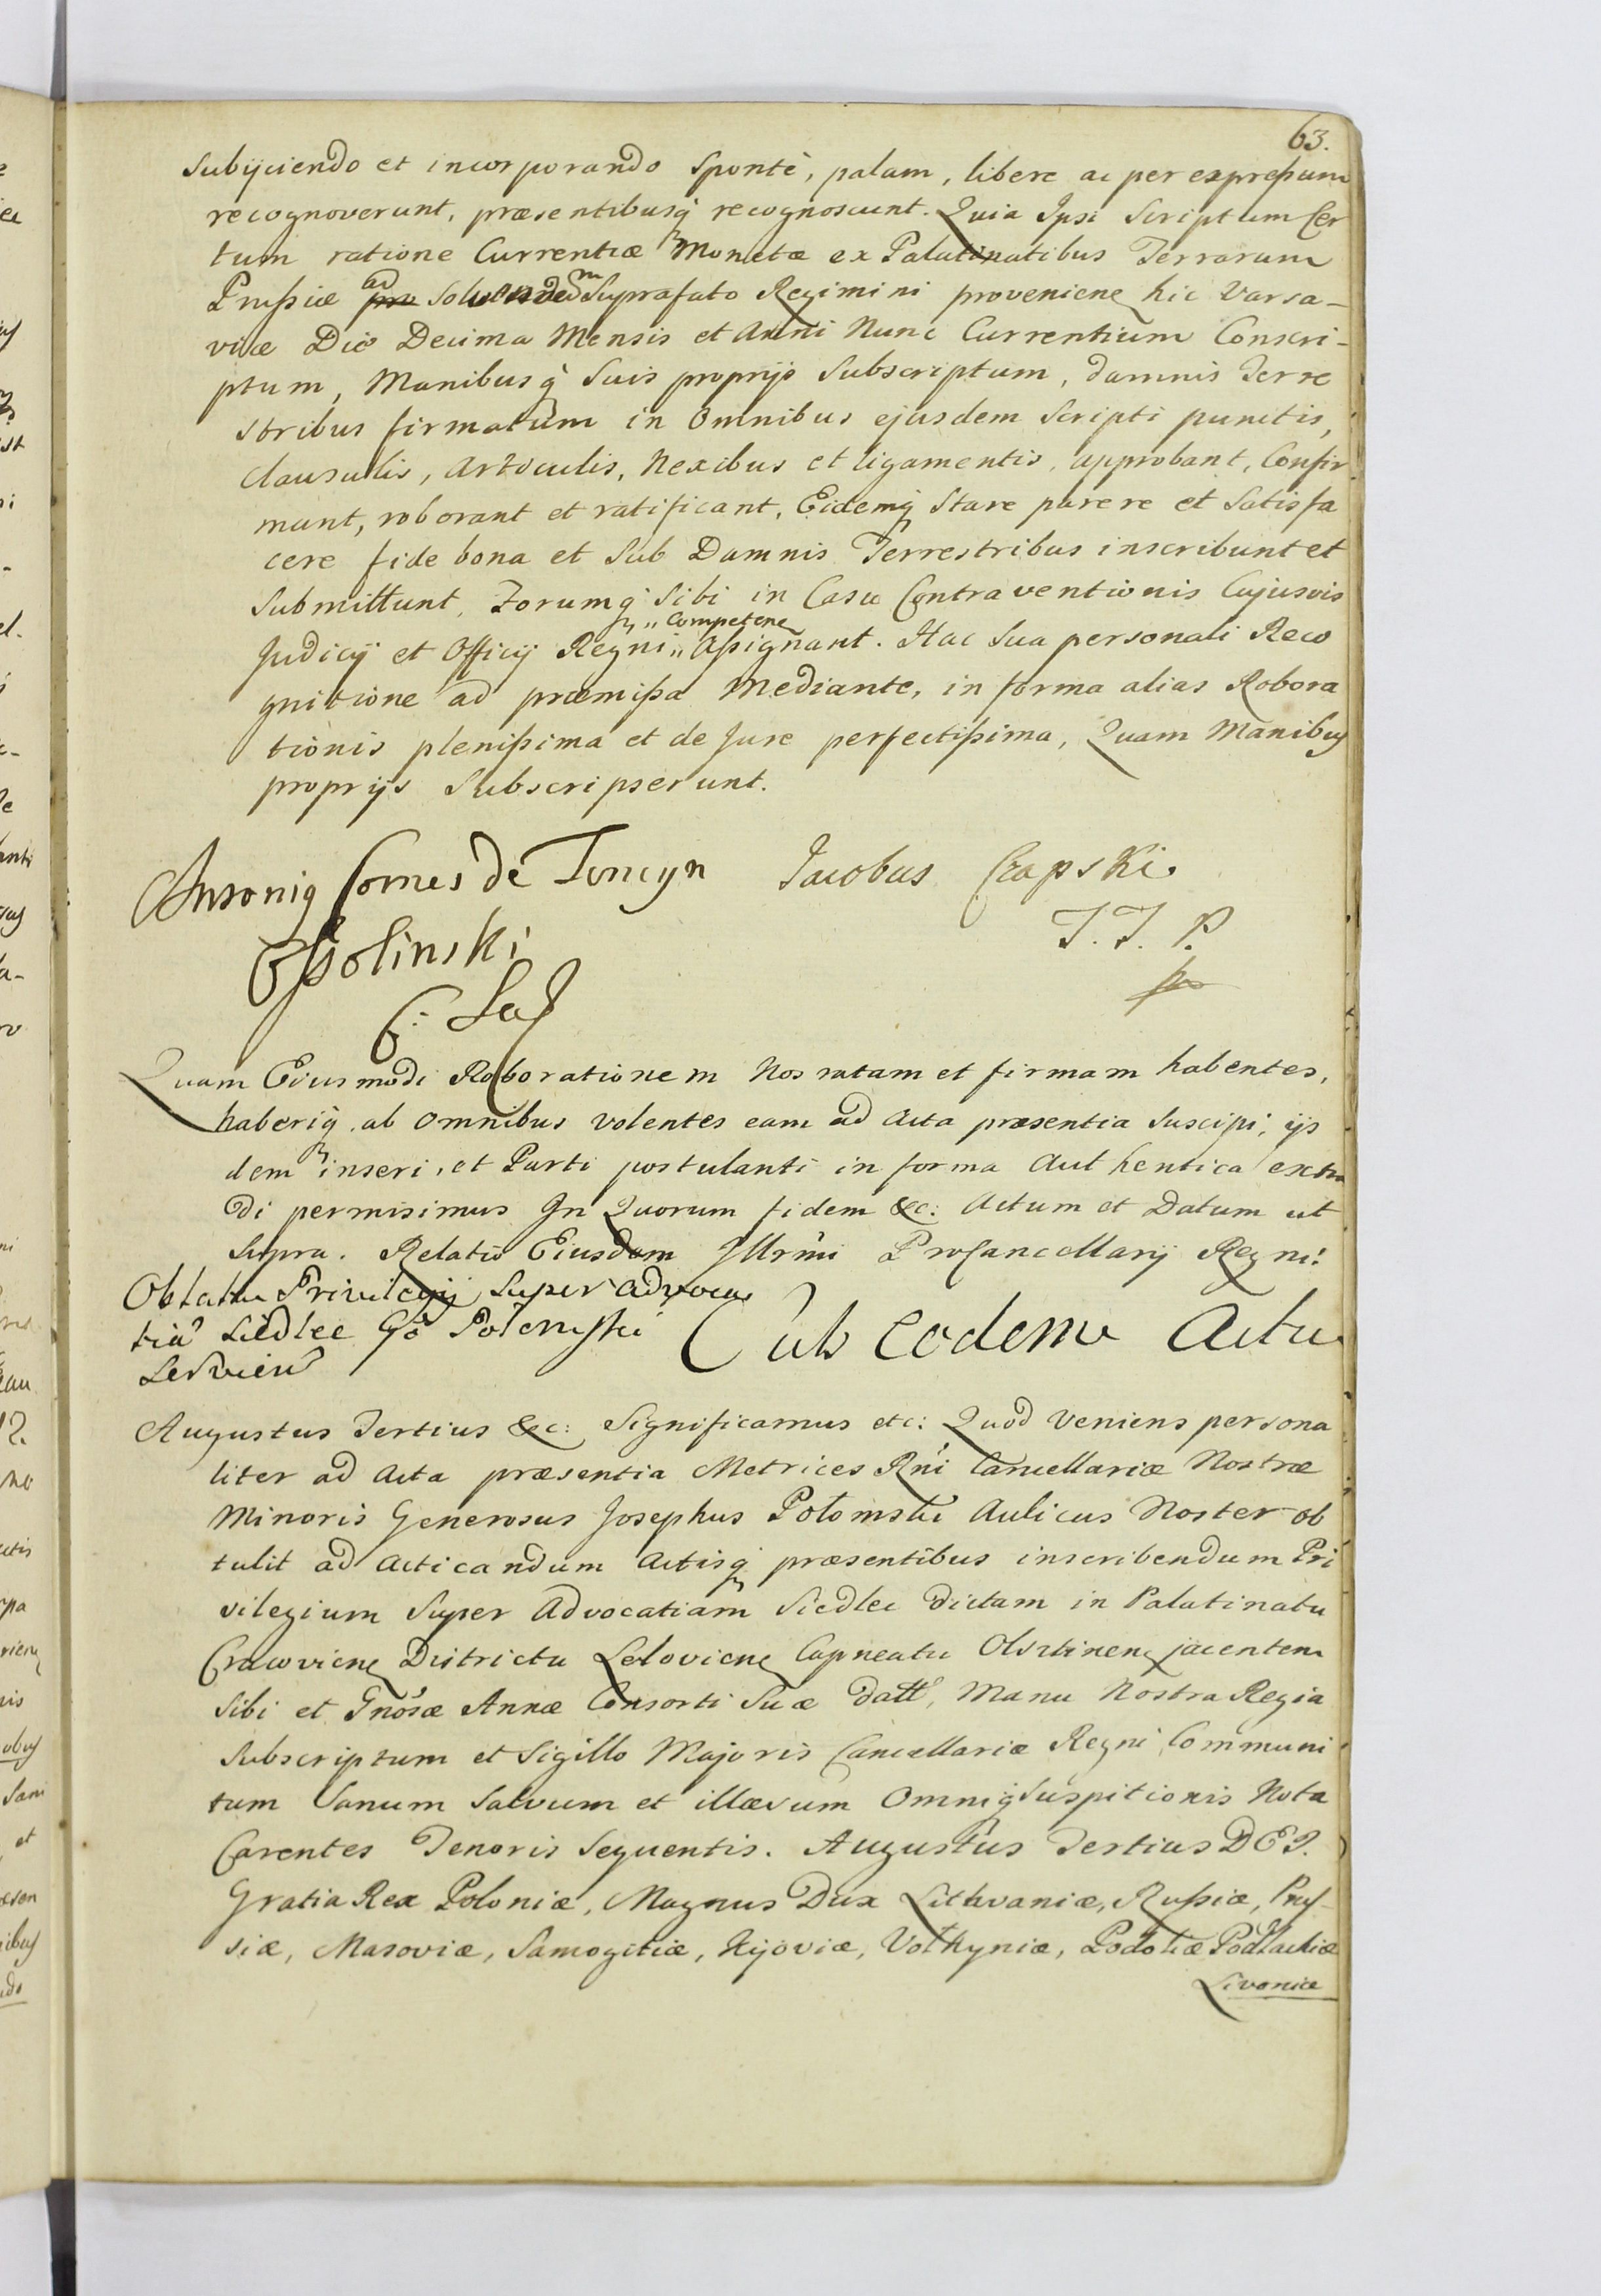 63.
Subijciendo et incorporando Sponte, palam, libere ac per expreßum
recognoverunt, præsentibusq recognoscunt. Quia Ipsi Scriptum Cer
tum ratione Currentiæ Monetæ ex Palatinatibus Terrarum
Prußiæ ad Solvendam Suprafato Regimini provenienę hic Varsa-
viæ Die Decima Mensis et Anni Nunc Currentium Conscri-
ptum, Manibusq Suis proprijs Subscriptum, damnis Terre
stribus firmatum in Omnibus ejusdem Scripti punctis,
Clausulis, Articulis, Nexibus et ligamentis, approbant, Confir
mant, roborant et ratificant, Eidemq Stare parere et Satisfa
cere fide bona et Sub Damnis Terrestribus inscribunt et
Submittunt, Forumq Sibi in Casu Contraventionis Cujusvis
Judicij et Officij Regni „Competenę„ Aßignant. Hac Sua personali Reco
gnitione ad præmißa Mediante, in forma alias Robora
tionis plenißima et de Jure perfectißima, Quam Manibus
proprijs Subscripserunt.
Antonig Comes de Tencyn Jacobus Czapski.
Oßolinski T. T. P.
C:
Quam Eiusmodi Roborationem Nos ratam et firmam habentes,
haberiq ab omnibus volentes eam ad Acta præsentia Suscipi, ijs
dem inseri, et Parti postulanti in forma Authentica extra
di permisimus In Quorum fidem &c: Actum et Datum ut
Supra. Relatio Eiusdem Illrmi ProCancellarij Regni.
Oblata Privilegij Super advoca
tia Siedlec Go Potomski
Servien
Sub eodem Actu
Augustus Tertius &c: Significamus etc: Quod Veniens persona
liter ad Acta præsentia Metrices Rni Cancellariæ Nostræ
Minoris Generosus Josephus Potomski Aulicus Noster ob
tulit ad Acticandum Actisq præsentibus inscribendum Pri
vilegium Super Advocatiam Siedlec dictam in Palatinatu
Cracovienę Districtu Lelovienę Capneatu Olsztinenę jacentem
Sibi et Gnosæ Annæ Consorti Suæ datt, Manu Nostra Regia
Subscriptum et Sigillo Majoris Cancellariæ Regni Communi
tum Sanum Salvum et illæsum Omniq Suspitionis Nota
Carentes Tenoris Sequentis. Augustus Tertius DEI.
Gratia Rex Poloniæ, Magnus Dux Lithvaniæ, Rußiæ, Prus-
siæ, Masoviæ, Samogitiæ, Kijoviæ, Volhyniæ, Podoliæ Podlachiæ
Livoniæ